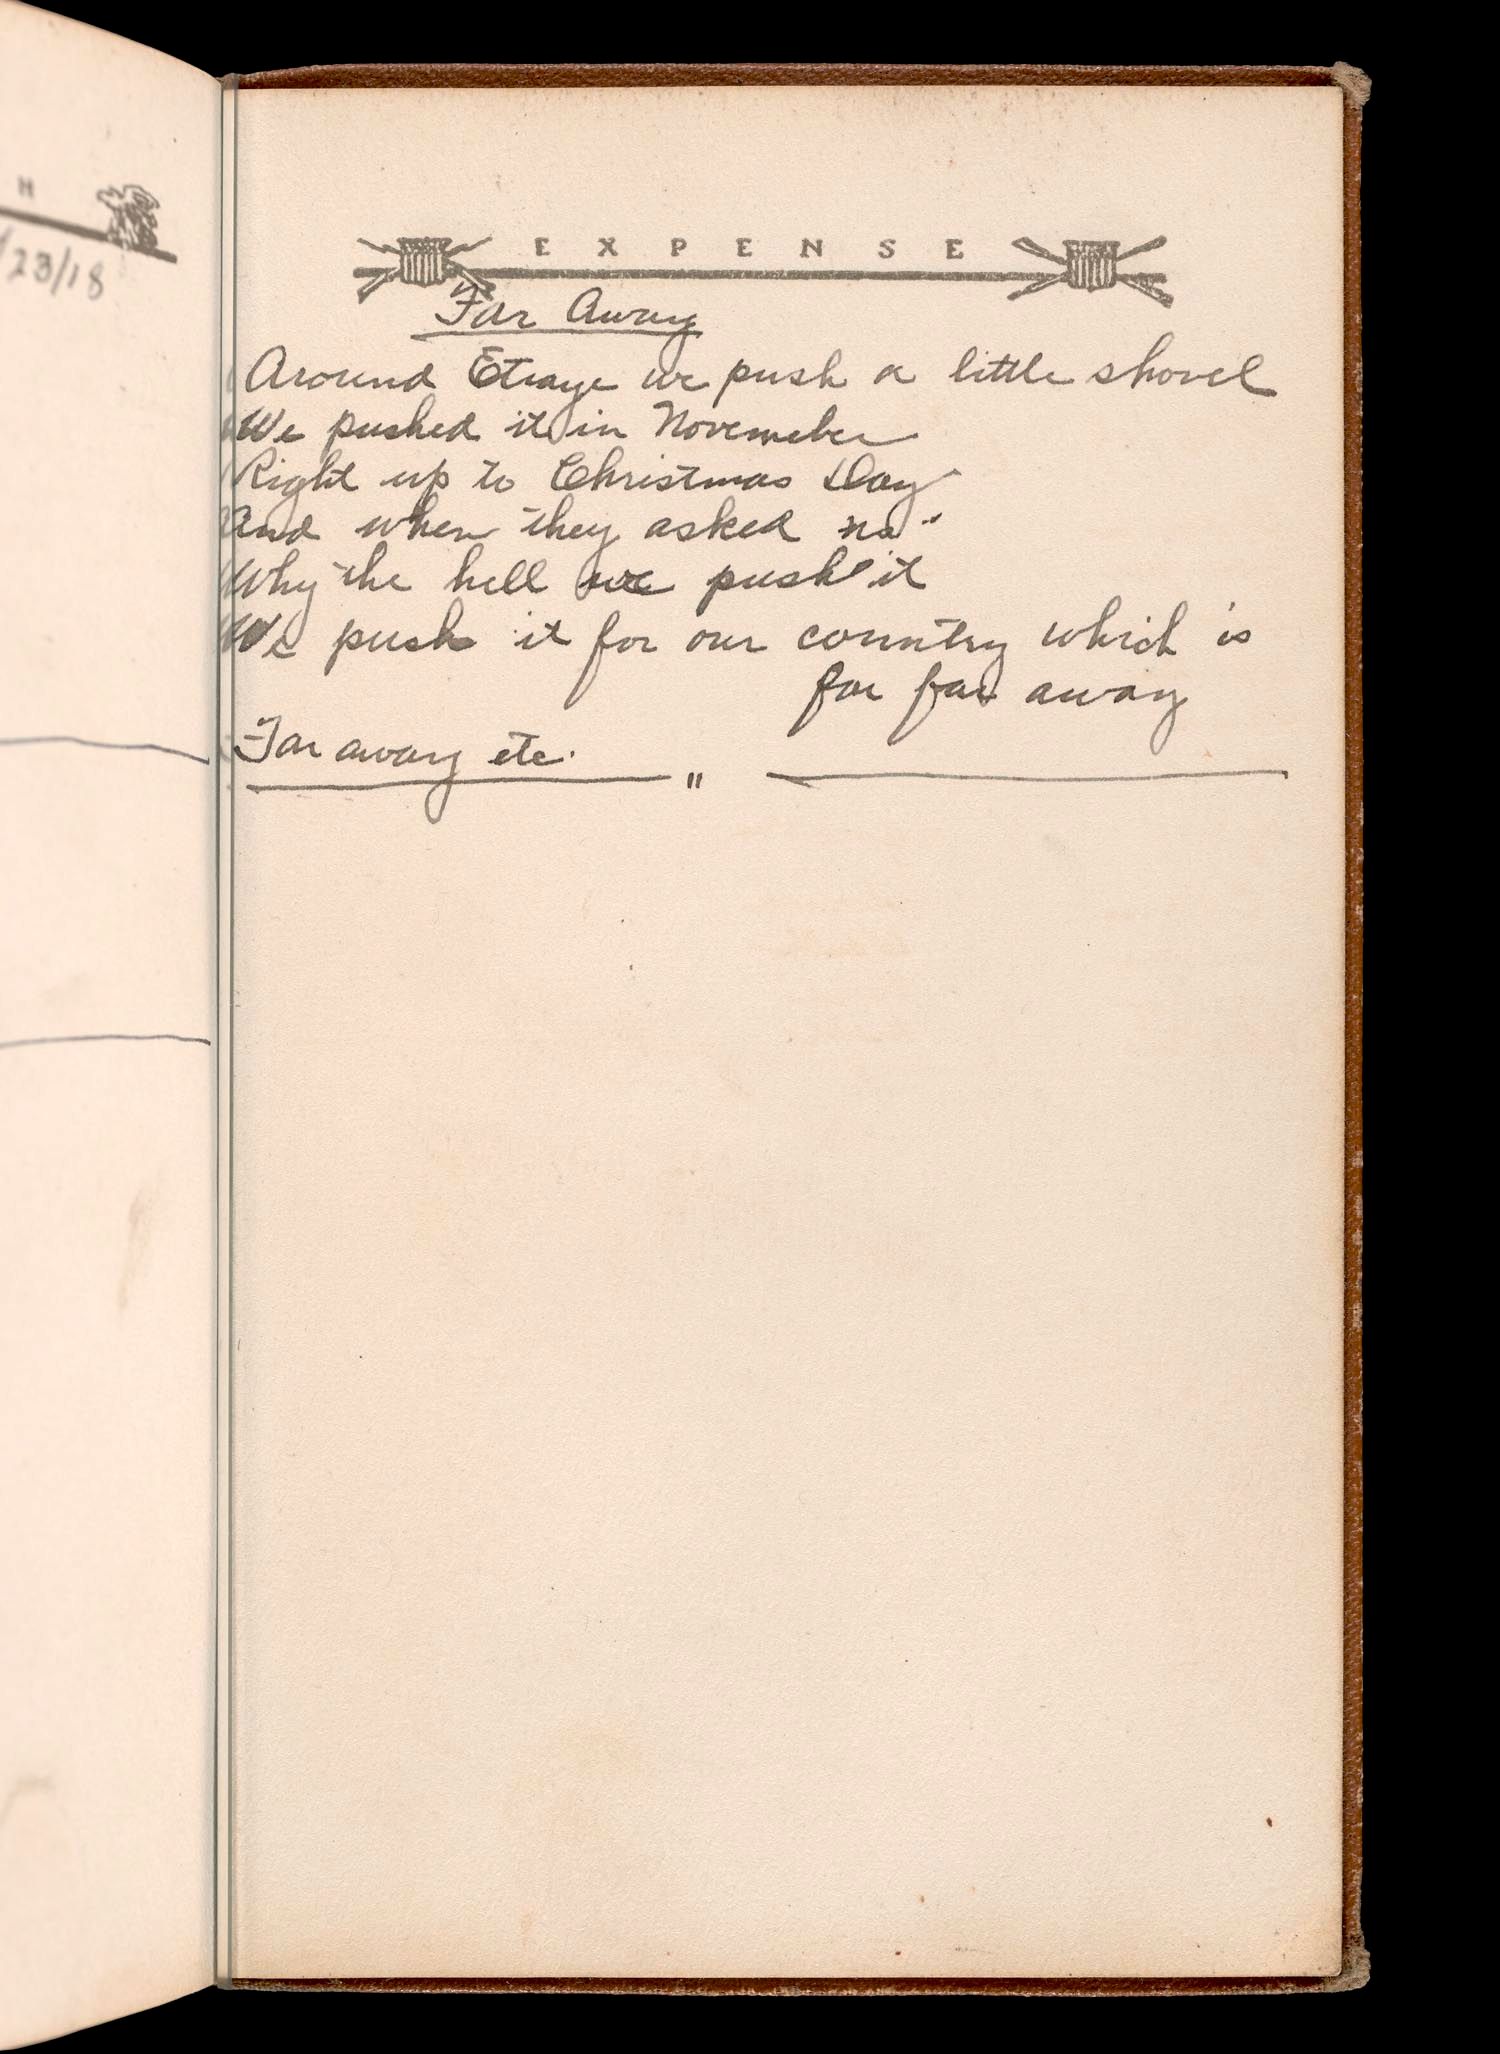 H
/23/18
EXPENSE
"Far Away
Around Etraye we push a little shovel
We pushed it in Novemeber
Right up to Christmas Day
And when they asked us"
Why the hell we push it
We push it for our country which is
far far away
Far away etc.
"